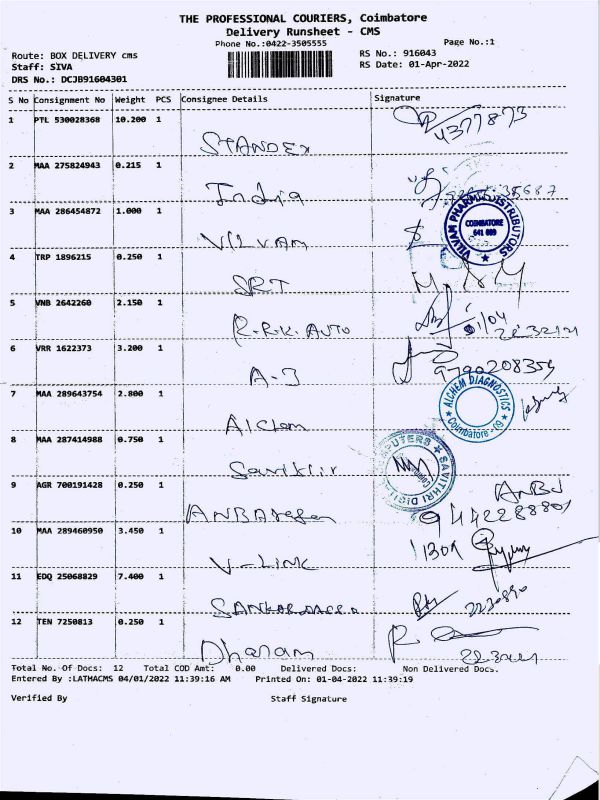 THE PROFESSIONAL COURIERS, Coimbatore
Delivery Runsheet - CMS
Phone No.:0422-3505555
Page No.:1
Route: BOX DELIVERY cms
RS No.: 916043
Staff: SIVA
RS Date: 01-Apr-2022
DRS No.: DCJB91604301
S No Consignment No Weight PCS Consignee Details Signature
1 PTL 530028368 10.200 1
STANDEX
4377873
2 MAA 275824943 0.215 1
India
3 MAA 286454872 1.000 1
VILVAM
VILVAM PHARMA DISTRIBUTORS
COIMBATORE
641 009
4 TRP 1896215 0.250 1
SRT
5 VNB 2642260 2.150 1
R.R.K. AUTO
6 VRR 1622373 3.200 1
A-J
9790208359
7 MAA 289643754 2.800 1
Alchem
ALCHEM DIAGNOSTICS
Coimbatore - 09
8 MAA 287414988 0.750 1
SAVITHRI DIGI
9 AGR 700191428 0.250 1
10 MAA 289460950 3.450 1
V-LINK
11 EDQ 25068829 7.400 1
12 TEN 7250813 0.250 1
Dharam
Total No. Of Docs: 12 Total COD Amt: 0.00 Delivered Docs: Non Delivered Docs.
Entered By :LATHACMS 04/01/2022 11:39:16 AM Printed On: 01-04-2022 11:39:19
Verified By Staff Signature